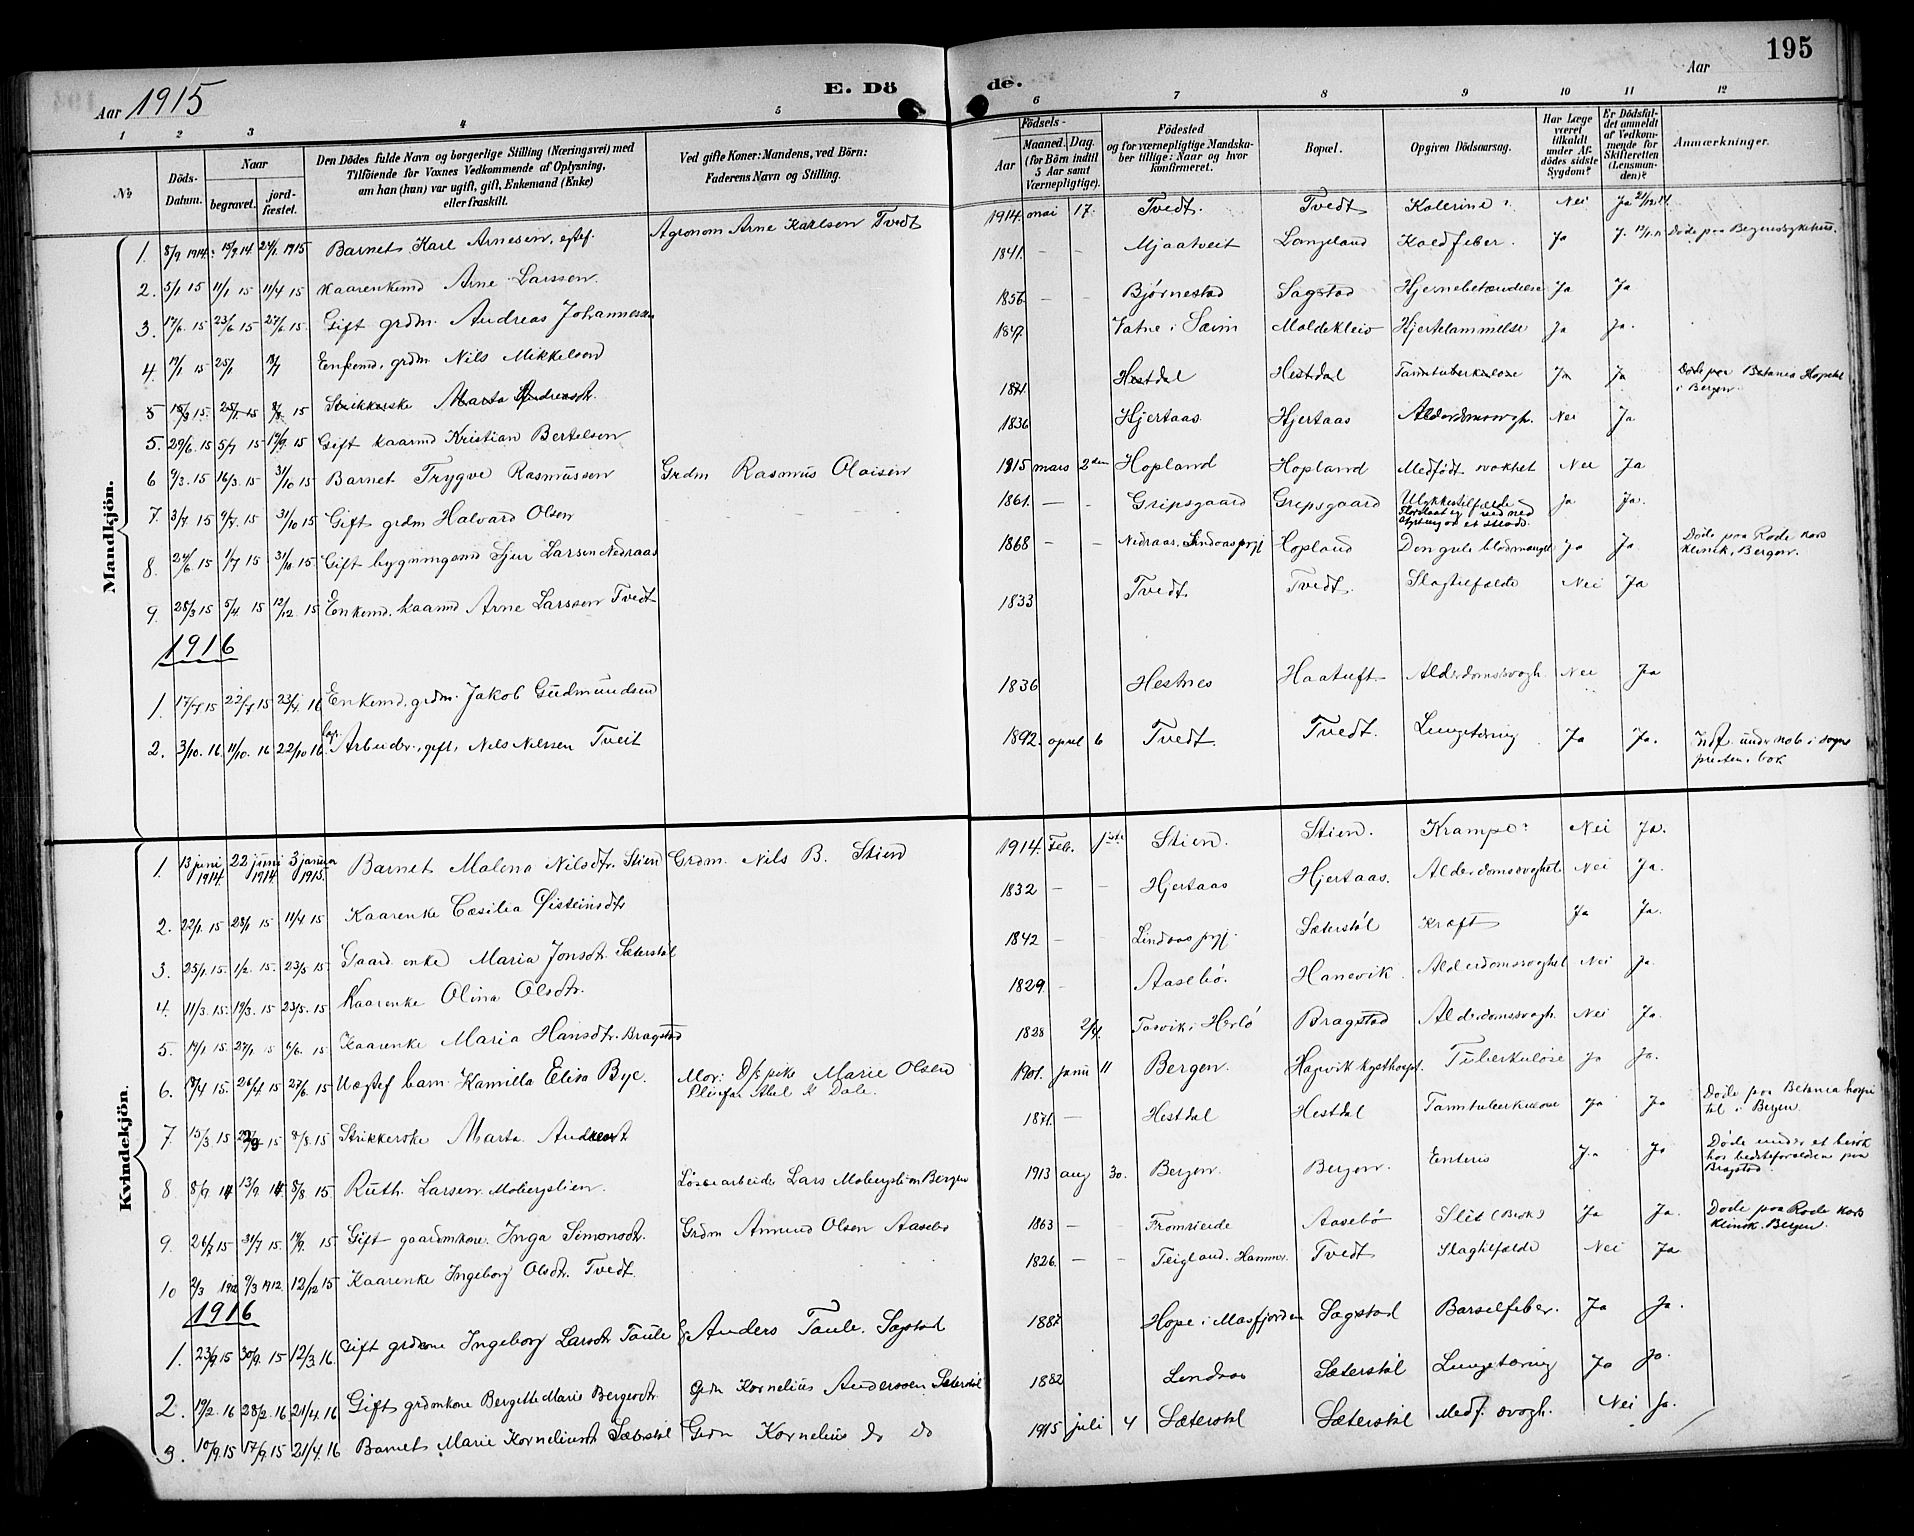 195
Aar 1915
E. Döde.
Aar
1 2 3 4 5 6 7 8 9 10 11 12
№
Döds-Datum.
Naar
begravet.
jord-fæstet.
Den Dödes fulde Navn og borgerlige Stilling (Næringsvei) med
Tilföiende for Voxnes Vedkommende af Oplysning,
om han (hun) var ugift, gift, Enkemand (Enke)
eller fraskilt.
Ved gifte Koner: Mandens, ved Börn:
Faderens Navn og Stilling.
Födsels-
Aar
Maaned. Dag.
(for Börn indtil
5 Aar samt
Værnepligtige).
Födested
og for værnepligtige Mandska-
ber tillige: Naar og hvor
konfirmeret.
Bopæl.
Opgiven Dödsaarsag.
Har Læge
været
tilkaldt
under Af-
dödes sidste
Sygdom?
Er Dödsfal-
det anmeldt
af Vedkom-
mende for
Skifteretten
(Lensman-
den)?
Anmærkninger.
Mandkjön.
1. 8/9 1914. 15/9 14. 24/1 1915 Barnet Karl Arnesen, Agronom Arne Karlsen Tvedt 1914 mai 17. Tvedt. Tvedt Kolerine? Nei Ja
2. 5/1 15 11/1 15 11/4 15 Kaarenkemd Arne Larssen. 1841. - - Mjaatveit Langeland Koldfeber. Ja J. Døde paa Bergens sykehus.
3. 17/6 15 23/6 15 27/6 15. Gift grdm. Andreas Johannessen 1856 - - Bjørnestad Sagstad Hjernebetændelse Ja Ja
4. 19/1 15 25/1 Enkemd. grdm Nils Mikkelsen 1847. Vatne i Sæim Moldekleiv Hjertelammelse Ja Ja.
5 15/3 15. 15 8/8 15 Strikkerske Marta Andreasdt. 1871. Hestdal Hestdal Tarmtuberkulose Ja Ja Døde paa Betania Hospital i Bergen.
5. 29/6 15 5/7 15 19/9 15 Gift kaarmd Kristian Bertelsen 1836 Hjertaas Hjertaas Alderdomssvagh. Nei Ja
6 9/3 15 16/3 15 31/10 15 Barnet Trygve Rasmussen Grdm Rasmus Olaisen 1915 mars 2den Hopland Hopland Medfødt svakhet Nei Ja
7. 3/7 15 9/7 15 31/10 15 Gift grdm Halvard Olsen 1861. - - Gripsgaard Gripsgaard Ulykkestilfælde Ja Ja.
8. 24/6 15 1/7 15 31/10 15 Gift bygningsmd Sjur Larsen Nedraas 1868 - - Nedraas, Lindaas prgj Hopland Den gule blodmangel Ja Ja. Døde paa Røde kors Klinik, Bergen.
9. 28/3 15 5/4 15 12/12 15 Enkemd. kaarmd Arne Larssen Tvedt 1833 Tvedt Tvedt. Slagtilfælde Nei Ja
1916
1. 17/7 15 22/7 15 23/4 16 Enkemd. grdm. Jakob Gudmundsen 1836 Hestnes Haatuft Alderdomssvagh. Nei Ja
2. 3/10 16 11/10 16 22/10 16 Arbeider, gift, Nils Nilssen Tveit 1892 april 6 Tvedt. Tvedt. Lungetæring Ja Ja. Indf. under No 6 i sogneprestens bok
Kvindekjön.
1. 13 juni 1914. 22 juni 1914 3 januar 1915. Barnet Malena Nilsdtr. Stien Grdm. Nils B. Stien 1914. Feb. 1ste Stien. Stien. Krampe? Nei Ja.
2. 22/1 15 28/1 15 11/4 15 Kaarenke Cæsilia Øisteinsdtr 1832 - - Hjertaas Hjertaas. Alderdomssvaghet Nei Ja.
3. 25/1 15. 1/2 15. 23/5 15. Gaard enke Maria Jonsdt. Sæterstøl 1842 - - Lindaas prgj. Sæterstøl Kræft Ja Ja.
4. 11/3 15. 19/3 15 23/5 15 Kaarenke Olina Olsdtr. 1829. - Aasebø. Hanevik. Alderdomssvaghet Nei Ja.
5. 19/1 15 27/1 15 6/6 15 Kaarenke Maria Hansdtr. Bragstad 1828 2/4 i Herlø Bragstad Alderdomssvagh. Nei Ja.
6. 19/4 15. 26/4 15 27/6 15 Uægtef barn Kamilla Elisa Bye. Mor: pike Marie Olsen Pleiefar Abel K Dale. 1901. janu 11 Bergen. Hagevik kysthospt. Tuberkulose Ja Ja.
7. 15/3 15 15 8/8 15 Strikkerske Marta Andreasdt 1871. - Hestdal Hestdal Tarmtuberkulose Ja Ja Døde paa Betania hospital i Bergen.
8 8/9 14 13/9 14. 8/8 15. Ruth Larsen Mobergslien. Løsearbeider Lars Mobergslien Bergen 1913 aug 30. Bergen. Bergen. Enteris Ja Ja Døde under et besøk hos bedsteforældrene paa Bragstad.
9. 26/7 15 31/7 15 19/9. 15 Gift gaardmkone. Inga Simonsdt. Grdm Amund Olsen Aasebø 1863 - Fromreide Aasebø Slet (Brok) Ja Ja. Døde paa Røde kors Klinik. Bergen.
10 2/3 1912 9/3 1912. 12/12 15 Kaarenke Ingeborg Olsdt. Tvedt. 1826. - - Teigland. Hammer. Tvedt Slagtilfælde Nei Ja
1916
1. 23/9 15 30/9. 15 12/3 16. Gift grdkone Ingeborg Larsdt Taule Anders Taule. Sagstad 1887 Hope i Masfjorden Sagstad Barselfeber. Ja Ja.
2. 19/2. 16 28/2. 16 21/4. 16 Gift grdmkone Bergitte Marie Bergesdt. Grdm Kornelius Anderssen Sæterstøl 1882 Lindaas Sæterstøl Lungetæring Ja Ja.
3. 10/9 15 17/9. 15 21/4. 16 Barnet Marie Korneliusdt Sæterstøl Grdm Kornelius do do 1915 juli 4 Sæterstøl Sæterstøl Medf. svagh. Nei Ja.